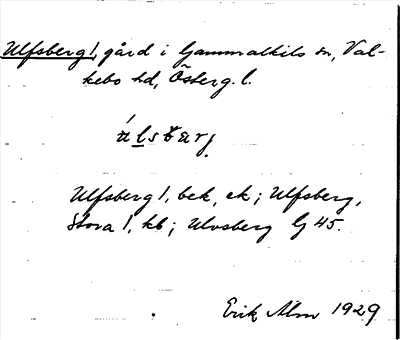 Ulfsberg 1, gård i Gammalkils sn, Val-
kebo hd, Österg. l.
Ulfsberg 1, bek, ek; Ulfsberg,
Stora 1, kb; Ulvsberg G 45.
Erik Alm 1929